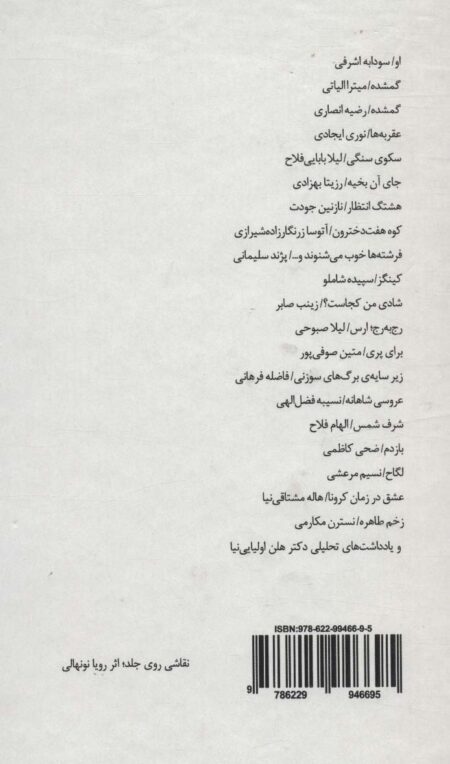 او/ سودابه اشرفی
گمشده/ میترا الیاتی
گمشده/ رضیه انصاری
عقربه‌ها/ نوری ایجادی
سکوی سنگی/ لیلا بابایی‌فلاح
جای آن بخیه/ رزیتا بهزادی
هشتگ انتظار/ نازنین جودت
کوه هفت‌دخترون/ آتوسا زرنگارزاده‌شیرازی
فرشته‌ها خوب می‌شنوند و.../ پژند سلیمانی
کینگز/ سپیده شاملو
شادی من کجاست؟/ زینب صابر
رج‌به‌رج؛ ارس/ لیلا صبوحی
برای پری/ متین صوفی‌پور
زیر سایه‌ی برگ‌های سوزنی/ فاضله فرهانی
عروسی شاهانه/ نسیبه فضل‌الهی
شرف شمس/ الهام فلاح
بازدم/ ضحی کاظمی
لگاح/ نسیم مرعشی
عشق در زمان کرونا/ هاله مشتاقی‌نیا
زخم طاهره/ نسترن مکارمی
و یادداشت‌های تحلیلی دکتر هلن اولیایی‌نیا
ISBN:978-622-99466-9-5
نقاشی روی جلد؛ اثر رویا نونهالی
9 786229 946695